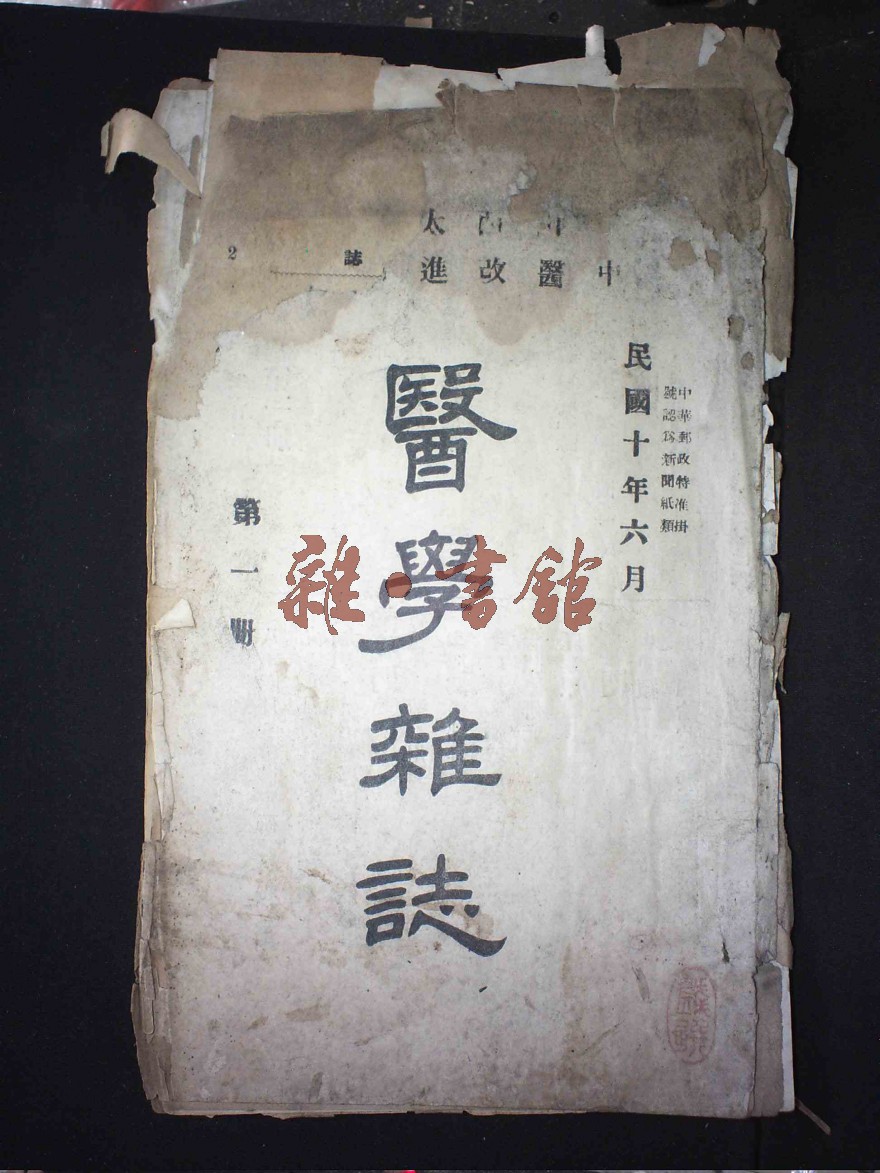 山西太
中醫改進
誌
2
中華郵政特准掛
號認爲新聞紙類
民國十年六月
醫學雜誌
第一冊
雜·書館